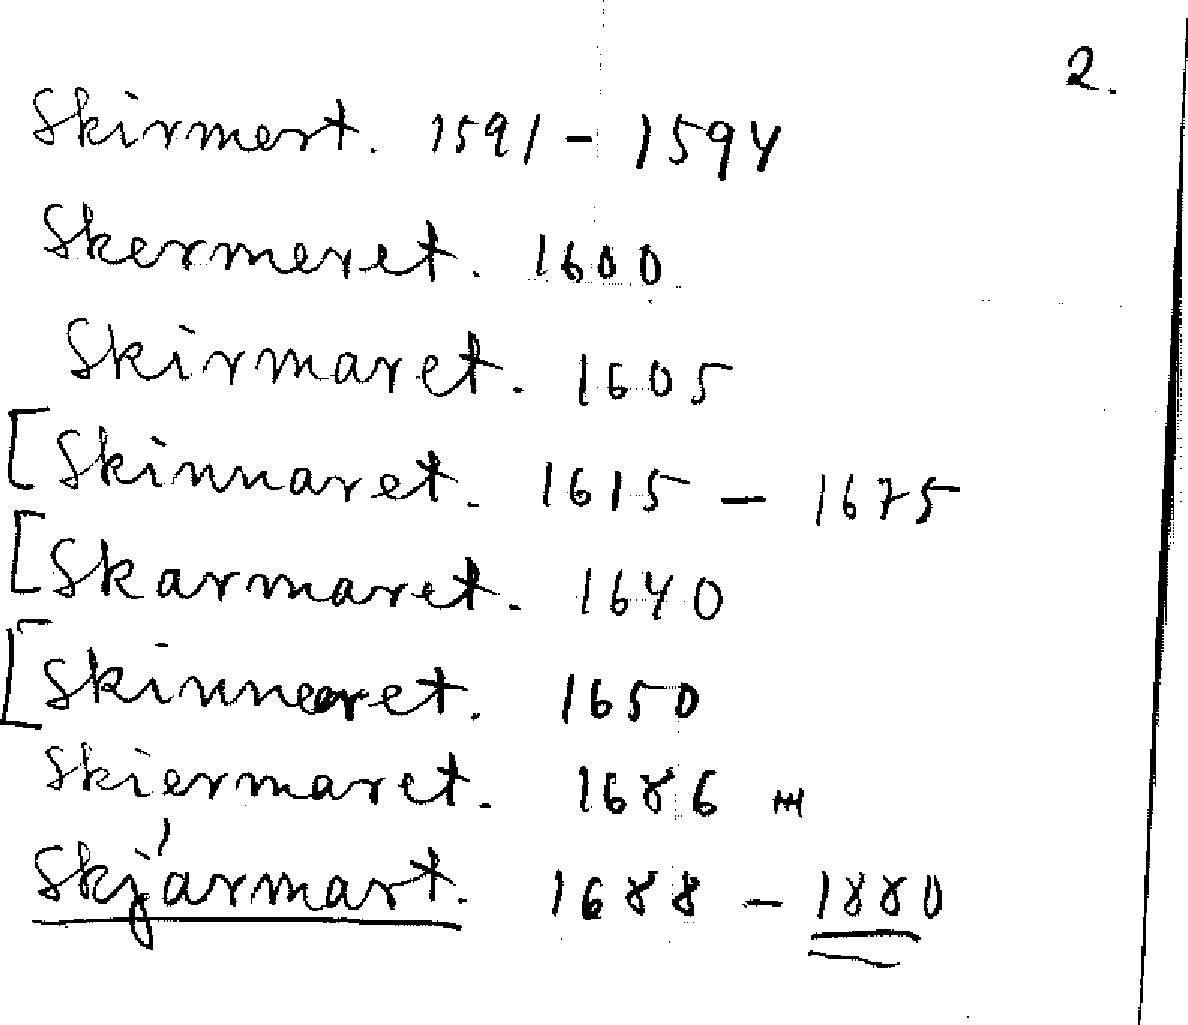 2.
Skirmert. 1591 - 1594
Skermeret. 1600
Skirmaret. 1605
[Skinnaret. 1615 - 1675
[Skarmaret. 1640
[Skinneret. 1650
Skiermaret. 1686
Skjármart. 1688 - 1880